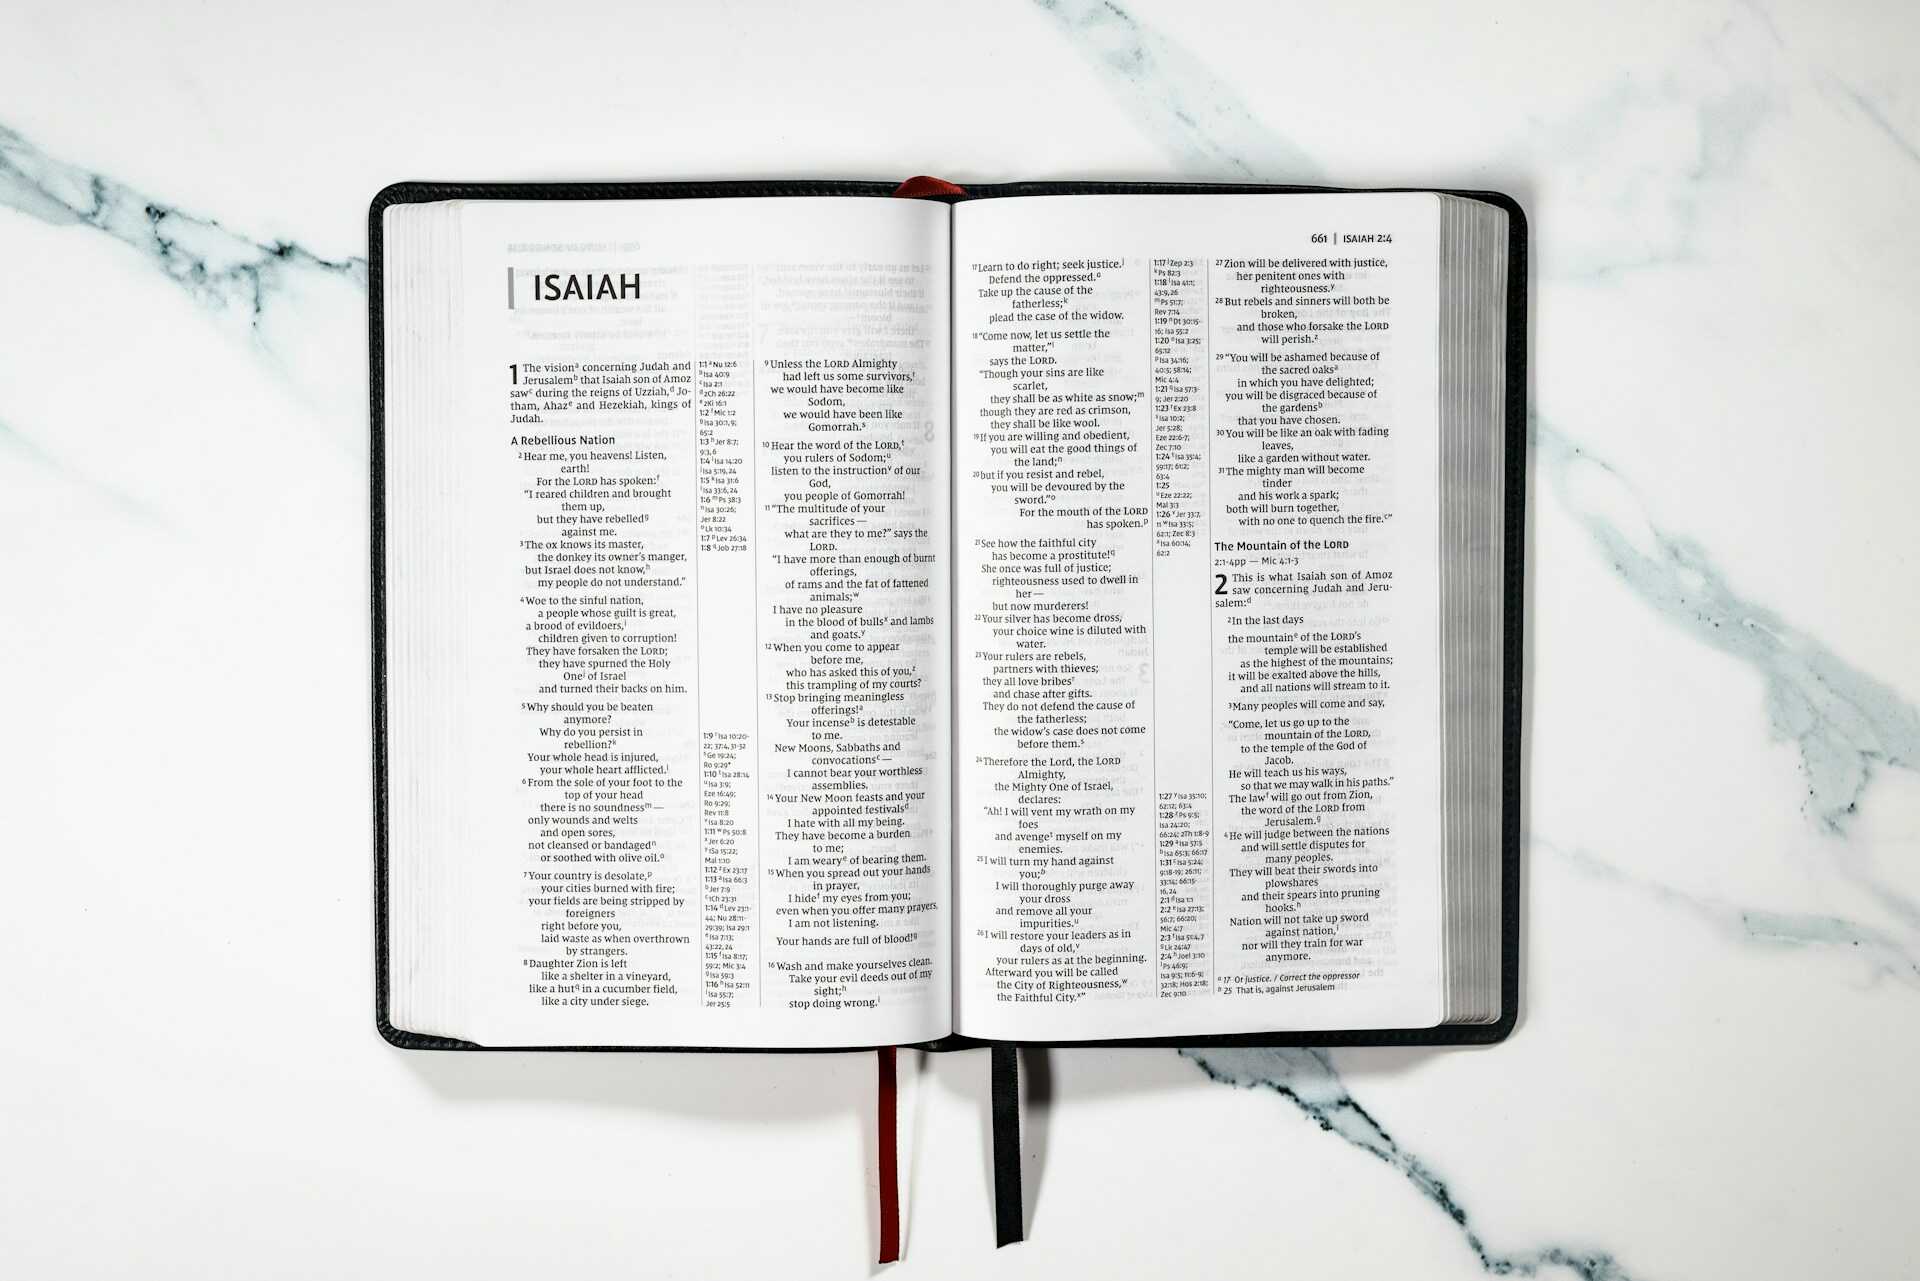 ISAIAH
1 The visionᵃ concerning Judah and
Jerusalemᵇ that Isaiah son of Amoz
sawᶜ during the reigns of Uzziah,ᵈ Jo-
tham, Ahazᵉ and Hezekiah, kings of
Judah.
A Rebellious Nation
²Hear me, you heavens! Listen,
earth!
For the LORD has spoken:ᶠ
“I reared children and brought
them up,
but they have rebelledᵍ
against me.
³The ox knows its master,
the donkey its owner’s manger,
but Israel does not know,ʰ
my people do not understand.”
⁴Woe to the sinful nation,
a people whose guilt is great,
a brood of evildoers,ⁱ
children given to corruption!
They have forsaken the LORD;
they have spurned the Holy
Oneʲ of Israel
and turned their backs on him.
⁵Why should you be beaten
anymore?
Why do you persist in
rebellion?ᵏ
Your whole head is injured,
your whole heart afflicted.ˡ
⁶From the sole of your foot to the
top of your head
there is no soundnessᵐ—
only wounds and welts
and open sores,
not cleansed or bandagedⁿ
or soothed with olive oil.ᵒ
⁷Your country is desolate,ᵖ
your cities burned with fire;
your fields are being stripped by
foreigners
right before you,
laid waste as when overthrown
by strangers.
⁸Daughter Zion is left
like a shelter in a vineyard,
like a hut𐞥 in a cucumber field,
like a city under siege.
1:1 ᵃNu 12:6
ᵇIsa 40:9
ᶜIsa 2:1
ᵈ2Ch 26:22
ᵉ2Ki 16:1
1:2 ᶠMic 1:2
ᵍIsa 30:1,9;
65:2
1:3 ʰJer 8:7;
9:3,6
1:4 ⁱIsa 14:20
ʲIsa 5:19,24
1:5 ᵏIsa 31:6
ˡIsa 33:6,24
1:6 ᵐPs 38:3
ⁿIsa 30:26;
Jer 8:22
ᵒLk 10:34
1:7 ᵖLev 26:34
1:8 𐞥Job 27:18
1:9 ʳIsa 10:20-
22; 37:4,31-32
ˢGe 19:24;
Ro 9:29*
1:10 ᵗIsa 28:14
ᵘIsa 3:9;
Eze 16:49;
Ro 9:29;
Rev 11:8
ᵛIsa 8:20
1:11 ʷPs 50:8
ˣJer 6:20
ʸ1Sa 15:22;
Mal 1:10
1:12 ᶻEx 23:17
1:13 ᵃIsa 66:3
ᵇJer 7:9
ᶜ1Ch 23:31
1:14 ᵈLev 23:1-
44; Nu 28:11-
29:39; Isa 29:1
ᵉIsa 7:13;
43:22,24
1:15 ᶠIsa 8:17;
59:2; Mic 3:4
ᵍIsa 59:3
1:16 ʰIsa 52:11
ⁱIsa 55:7;
Jer 25:5
⁹Unless the LORD Almighty
had left us some survivors,ʳ
we would have become like
Sodom,
we would have been like
Gomorrah.ˢ
¹⁰Hear the word of the LORD,ᵗ
you rulers of Sodom;ᵘ
listen to the instructionᵛ of our
God,
you people of Gomorrah!
¹¹“The multitude of your
sacrifices —
what are they to me?” says the
LORD.
“I have more than enough of burnt
offerings,
of rams and the fat of fattened
animals;ʷ
I have no pleasure
in the blood of bullsˣ and lambs
and goats.ʸ
¹²When you come to appear
before me,
who has asked this of you,ᶻ
this trampling of my courts?
¹³Stop bringing meaningless
offerings!ᵃ
Your incenseᵇ is detestable
to me.
New Moons, Sabbaths and
convocationsᶜ—
I cannot bear your worthless
assemblies.
¹⁴Your New Moon feasts and your
appointed festivalsᵈ
I hate with all my being.
They have become a burden
to me;
I am wearyᵉ of bearing them.
¹⁵When you spread out your hands
in prayer,
I hideᶠ my eyes from you;
even when you offer many prayers,
I am not listening.
Your hands are full of blood!ᵍ
¹⁶Wash and make yourselves clean.
Take your evil deeds out of my
sight;ʰ
stop doing wrong.ⁱ
661 | ISAIAH 2:4
¹⁷Learn to do right; seek justice.ʲ
Defend the oppressed.ᵃ
Take up the cause of the
fatherless;ᵏ
plead the case of the widow.
¹⁸“Come now, let us settle the
matter,”ˡ
says the LORD.
“Though your sins are like
scarlet,
they shall be as white as snow;ᵐ
though they are red as crimson,
they shall be like wool.
¹⁹If you are willing and obedient,
you will eat the good things of
the land;ⁿ
²⁰but if you resist and rebel,
you will be devoured by the
sword.”ᵒ
For the mouth of the LORD
has spoken.ᵖ
²¹See how the faithful city
has become a prostitute!𐞥
She once was full of justice;
righteousness used to dwell in
her —
but now murderers!
²²Your silver has become dross,
your choice wine is diluted with
water.
²³Your rulers are rebels,
partners with thieves;
they all love bribesʳ
and chase after gifts.
They do not defend the cause of
the fatherless;
the widow’s case does not come
before them.ˢ
²⁴Therefore the Lord, the LORD
Almighty,
the Mighty One of Israel,
declares:
“Ah! I will vent my wrath on my
foes
and avengeᵗ myself on my
enemies.
²⁵I will turn my hand against
you;ᵇ
I will thoroughly purge away
your dross
and remove all your
impurities.ᵘ
²⁶I will restore your leaders as in
days of old,ᵛ
your rulers as at the beginning.
Afterward you will be called
the City of Righteousness,ʷ
the Faithful City.ˣ”
1:17 ʲZep 2:3
ᵏPs 82:3
1:18 ˡIsa 41:1;
43:9,26
ᵐPs 51:7;
Rev 7:14
1:19 ⁿDt 30:15-
16; Isa 55:2
1:20 ᵒIsa 3:25;
65:12
ᵖIsa 34:16;
40:5; 58:14;
Mic 4:4
1:21 𐞥Isa 57:3-
9; Jer 2:20
1:23 ʳEx 23:8
ˢIsa 10:2;
Jer 5:28;
Eze 22:6-7;
Zec 7:10
1:24 ᵗIsa 35:4;
59:17; 61:2;
63:4
1:25
ᵘEze 22:22;
Mal 3:3
1:26 ᵛJer 33:7,
11 ʷIsa 33:5;
62:1; Zec 8:3
ˣIsa 60:14;
62:2
1:27 ʸIsa 35:10;
62:12; 63:4
1:28 ᶻPs 9:5;
Isa 24:20;
66:24; 2Th 1:8-9
1:29 ᵃIsa 57:5
ᵇIsa 65:3; 66:17
1:31 ᶜIsa 5:24;
9:18-19; 26:11;
33:14; 66:15-
16,24
2:1 ᵈIsa 1:1
2:2 ᵉIsa 27:13;
56:7; 66:20;
Mic 4:7
2:3 ᶠIsa 51:4,7
ᵍLk 24:47
2:4 ʰJoel 3:10
ⁱPs 46:9;
Isa 9:5; 11:6-9;
32:18; Hos 2:18;
Zec 9:10
²⁷Zion will be delivered with justice,
her penitent ones with
righteousness.ʸ
²⁸But rebels and sinners will both be
broken,
and those who forsake the LORD
will perish.ᶻ
²⁹“You will be ashamed because of
the sacred oaksᵃ
in which you have delighted;
you will be disgraced because of
the gardensᵇ
that you have chosen.
³⁰You will be like an oak with fading
leaves,
like a garden without water.
³¹The mighty man will become
tinder
and his work a spark;
both will burn together,
with no one to quench the fire.ᶜ”
The Mountain of the LORD
2:1-4pp — Mic 4:1-3
2 This is what Isaiah son of Amoz
saw concerning Judah and Jeru-
salem:ᵈ
²In the last days
the mountainᵉ of the LORD’s
temple will be established
as the highest of the mountains;
it will be exalted above the hills,
and all nations will stream to it.
³Many peoples will come and say,
“Come, let us go up to the
mountain of the LORD,
to the temple of the God of
Jacob.
He will teach us his ways,
so that we may walk in his paths.”
The lawᶠ will go out from Zion,
the word of the LORD from
Jerusalem.ᵍ
⁴He will judge between the nations
and will settle disputes for
many peoples.
They will beat their swords into
plowshares
and their spears into pruning
hooks.ʰ
Nation will not take up sword
against nation,ⁱ
nor will they train for war
anymore.
ᵃ 17 Or justice. / Correct the oppressor
ᵇ 25 That is, against Jerusalem